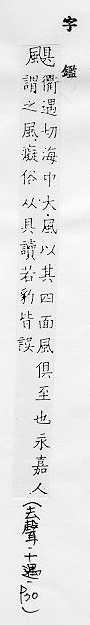 字鑑
颶
衢遇切海中大風以其四面風俱至也永嘉人
謂之風癡俗从具讀若豹皆誤
(去聲·十遇·P30)